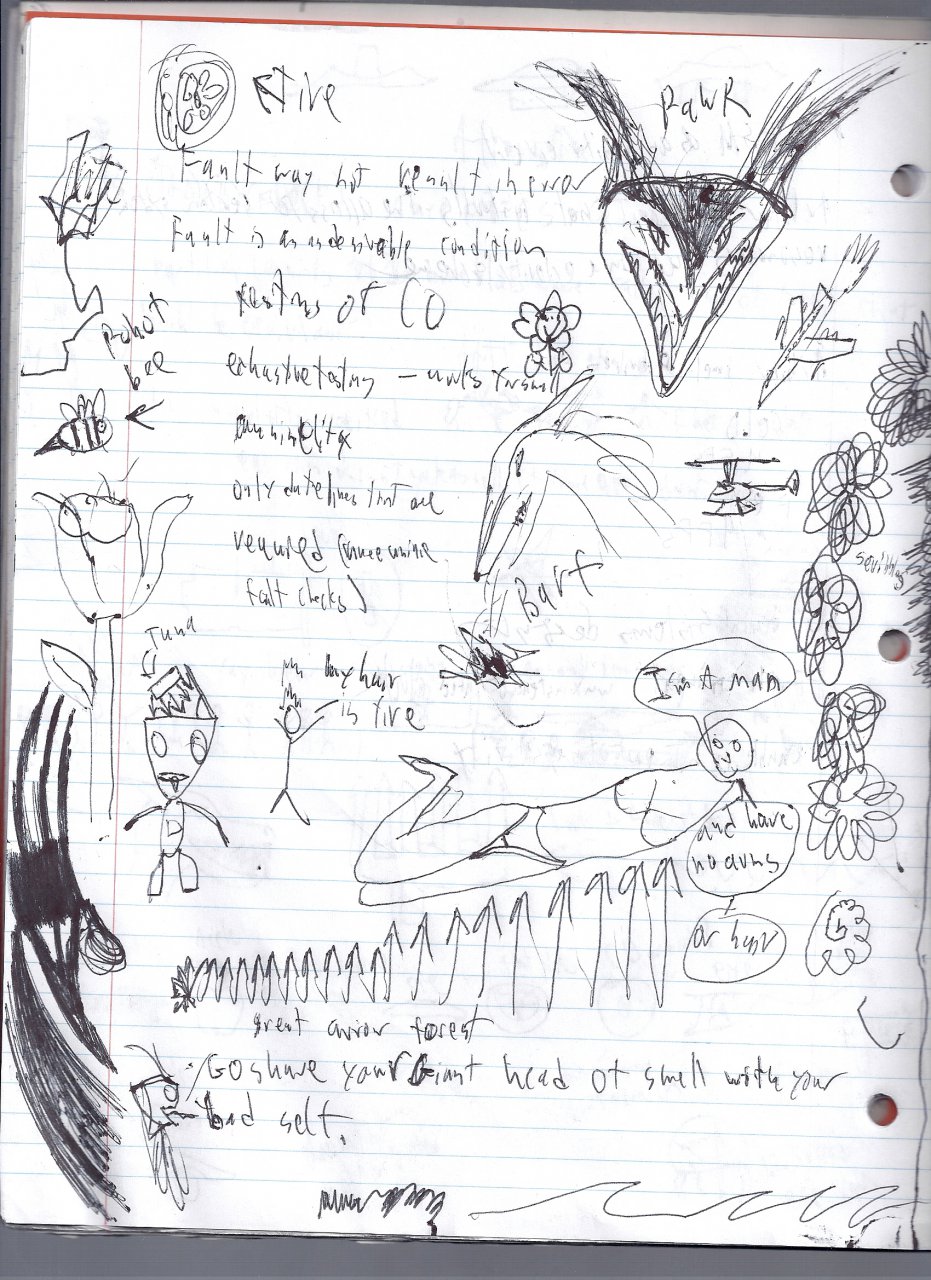 Tire
RaWR
Fault may not result in error
Fault is an undesirable condition
of CO
Robot
bee
exhaustive testing – works for small
only that are
required
fault checks)
scribbles
Barf
Tuna
my hair
is fire
I'm A man
and have
no arms
or hair
great arrow forest
Go shave your Giant head of smell with your
bad self.